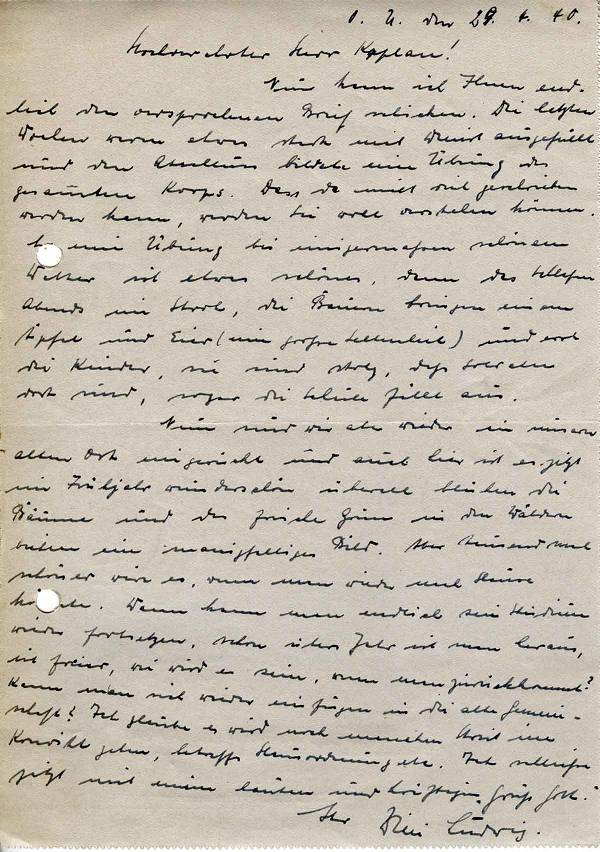 O. U. den 29. 4. 40.
Hochverehrter Herr Kaplan!
Nun kann ich Ihnen end-
lich den versprochenen Brief schicken. Die letzten
Wochen waren etwas stark mit Dienst ausgefüllt
und den Abschluss bildete eine Übung des
gesamten Korps. Dass da nicht viel geschrieben
werden kann, werden Sie wohl verstehen können.
eine Übung bei einigermassen schönem
Wetter ist etwas schönes, denn das schlafen
Abends im Stroh, die Bauern bringen einem
Äpfel und Eier (eine große Seltenheit) und erst
die Kinder, sie sind stolz, dass Soldaten
dort sind, sogar die Schule fällt aus.
Nun sind wir aber wieder in unseren
alten Ort eingerückt und auch hier ist es jetzt
im Frühjahr wunderschön überall blühen die
Bäume und das frische Grün in den Wäldern
bieten ein manigfaltiges Bild. Aber tausend mal
schöner wäre es, wenn man wieder nach Hause
könnte. Wann kann man endlich sein Studium
wieder fortsetzen, schon übers Jahr ist man heraus,
ist freier, wie wird es sein, wenn man zurückkommt?
Kann man sich wieder einfügen in die alte Gemein-
schaft? Ich glaube es wird noch manchen Streit im
Konvikt geben, betreffs Hausordnung etc. Ich schliesse
jetzt mit einem lauten und kräftigen „Grüß Gott."
Ihr Ludwig.